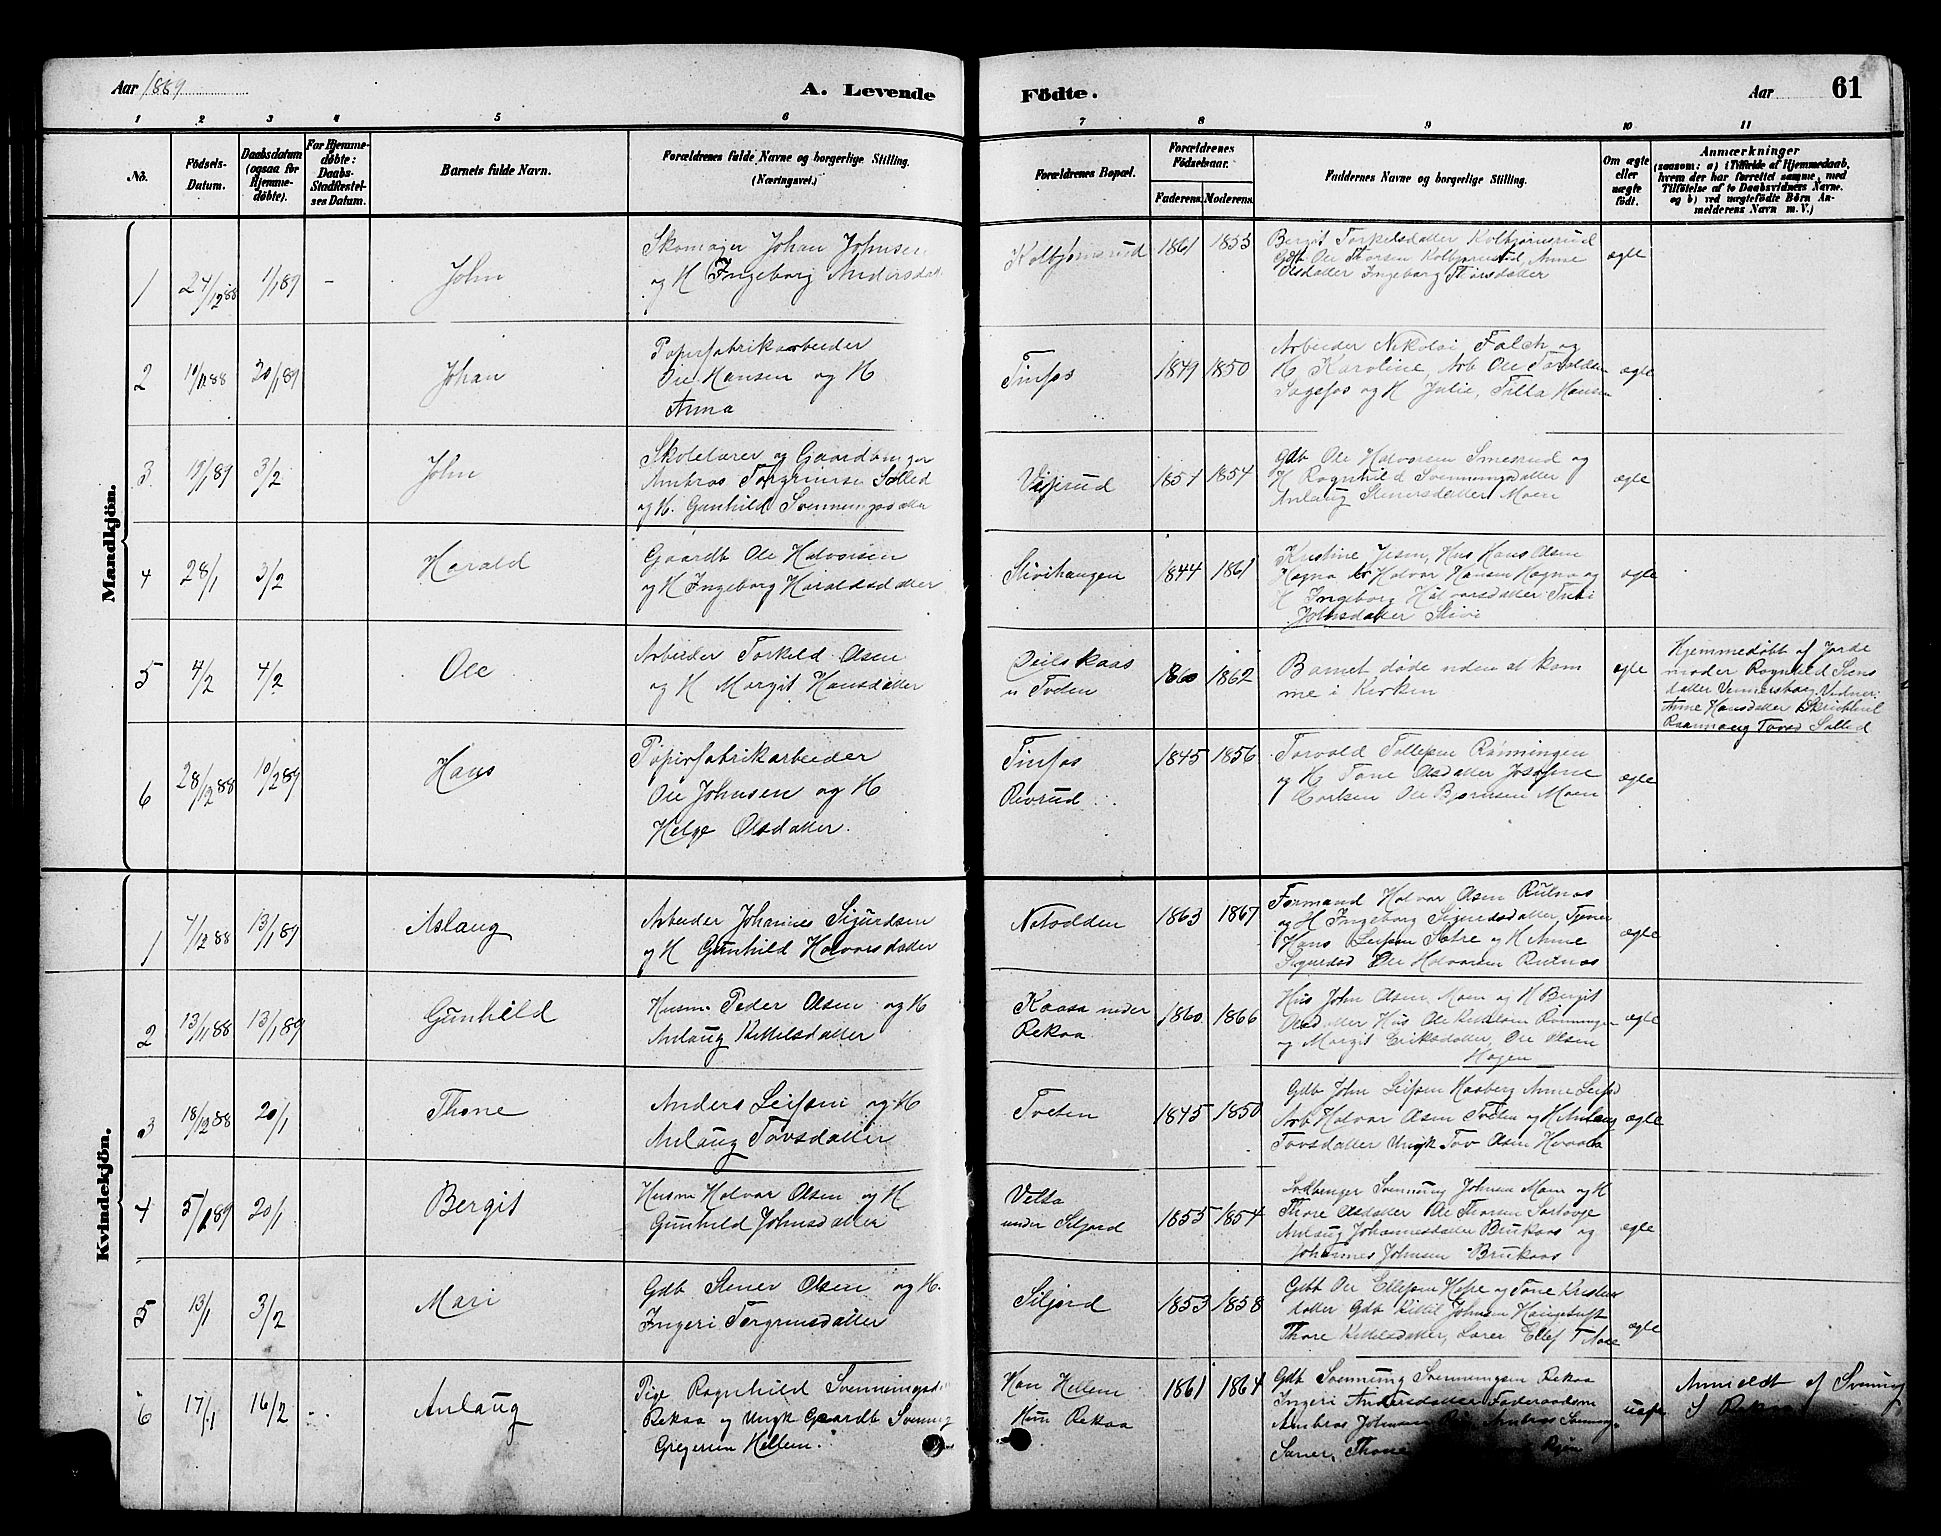 Aar 1889
A. Levende
Födte.
Aar
61
1 2 3 4 5 6 7 8 9 10 11
No.
Fødsels-
Datum.
Daabsdatum
(ogsaa for
Hjemme-
døbte).
For Hjemme-
døbte:
Daabs-
Stadfæstel-
ses Datum.
Barnets fulde Navn.
Forældrenes fulde Navne og borgerlige Stilling.
(Næringsvei.)
Forældrenes Bopæl.
Forældrenes
Fødselsaar.
Faderens. Moderens.
Faddernes Navne og borgerlige Stilling.
Om ægte
eller
uægte
født.
Anmærkninger
(saasom: a) i Tilfælde af Hjemmedaab,
hvem der har forrettet samme, med
Tilføielse af to Daabsvidners Navne.
og b) ved uægtefødte Børn An-
melderens Navn m. V.)
Mandkjön.
1 24/12 88 1/1 89 - John
Skomager Johan Johnsen
og H Ingeborg Andersdat
Kolbjørnsrud 1861 1853
Bergit Torkelsdatter Kolbjørnsrud
Gdb Ole Thorsen Kolbjørnsrud Anne
Olsdatter Ingeborg Thorsdatter
ægte
2 10/11 88 20/1 89 Johan
Papirfabrikarbeider
Ole Hansen og H
Anna
Tinfos 1849 1850
Arbeider Nikolai Falch og
H Karoline, Arb Ole Tovoldsen
Sagafos og H Julie, Tilla Hansen
ægte
3 19/1 89 3/2 John
Skolelærer og Gaardbruger
Ambros Torgrimsen Solled
og H. Gunhild Svenningsdatter
1854 1854
Gdb Ole Halvorsen Smesrud og
H Rognhild Svenningsdatter
Anlaug Stenersdatter Moen
ægte
4 28/1 3/2 Harald
Gaardb Ole Halvorsen
og H Ingeborg Haraldsdatter
Stivihaugen 1844 1861
Kristine Jesm, Hus Hans Olsen
Hogna Halvor Hansen Hogna og
H Ingeborg Halvorsdatter
Johnsdatter Stivi
ægte
5 4/2 4/2 Ole
Arbeider Torkild Olsen
og H Margit Hansdatter
u Tveten 1860 1862
Barnet døde uden at kom
me i Kirken
ægte
Hjemmedøbt af Jorde
moder Rognhild Stens
datter Vennersborg Vidner:
Anne Hansdatter
Tovsd Solled
6 28/12 88 10/2 89 Hans
Papirfabrikarbeider
Ole Johnsen og H
Helge Olsdatter.
Tinfos 1845 1856
Torvald Tollefsen Rønningen
og H Tone Olsdatter Josefine
Ole Bjørnsen Moen
ægte
Kvindekjön.
1 7/12 88 13/1 89 Aslaug
Arbeider Johannes Sigurdsen
og H Gunhild Halvorsdatter
Notodden 1863 1867
Formand Halvor Olsen Rutnos
og H Ingeborg Sigurdsdatter, Tjener
Hans Leifsen Sætre og H Anne
Sigurdsd Ole Halvorsen Rutnos
ægte
2 13/11 88 13/1 89 Gunhild
Husm Peder Olsen og H
Anlaug Kittelsdatter
Kaasa under
Rekaa
1860 1866
Hus John Olsen Moen og H Bergit
Olsdatter Hus Ole Kittelsen Rønningen
og Margit Eriksdatter, Ole Olsen
Hagen
ægte
3 18/12 88 20/1 Thone
Anders Leifsen og H
Anlaug Tovsdatter
Tveten 1845 1850
Gdb John Leifsen Haaberg Anne Leifsd
Arb Halvor Olsen Tveten og H Anlaug
Tovsdatter Ungk Tov Olsen
ægte
4 5/1 89 20/1 Bergit
Husm Halvor Olsen og H
Gunhild Johnsdatter
under Siljord 1855 1854
Svennung Johnsen Moen og H
Thore Olsdatter Ole Thorsen
Anlaug Johannesdatter Brukaas og
Johannes Johnsen Brukaas
ægte
5 13/1 3/2 Mari
Gdb Stener Olsen og H.
Ingeri Torgrimsdatter
Siljord 1853 1858
Gdb Ole Ellefsen og Tone Kristens
datter Gdb Kittil Johnsen Haugetuft
Thore Kittelsdatter, Lærer Ellef
ægte
6 17/1 16/2 - Anlaug
Pige Rognhild Svenningsd
Rekaa og Ungk Gaardb Svenning
Gregersen Hellem.
Han Hellem
Hun Rekaa
1861 1864
Gdb Svennung Svenningsen Rekaa
Ingeri Andersdatter Føderaadsm
Ambros Johnsen Ambros
Thone
uægte
Anmeldt af Svenning
S Rekaa